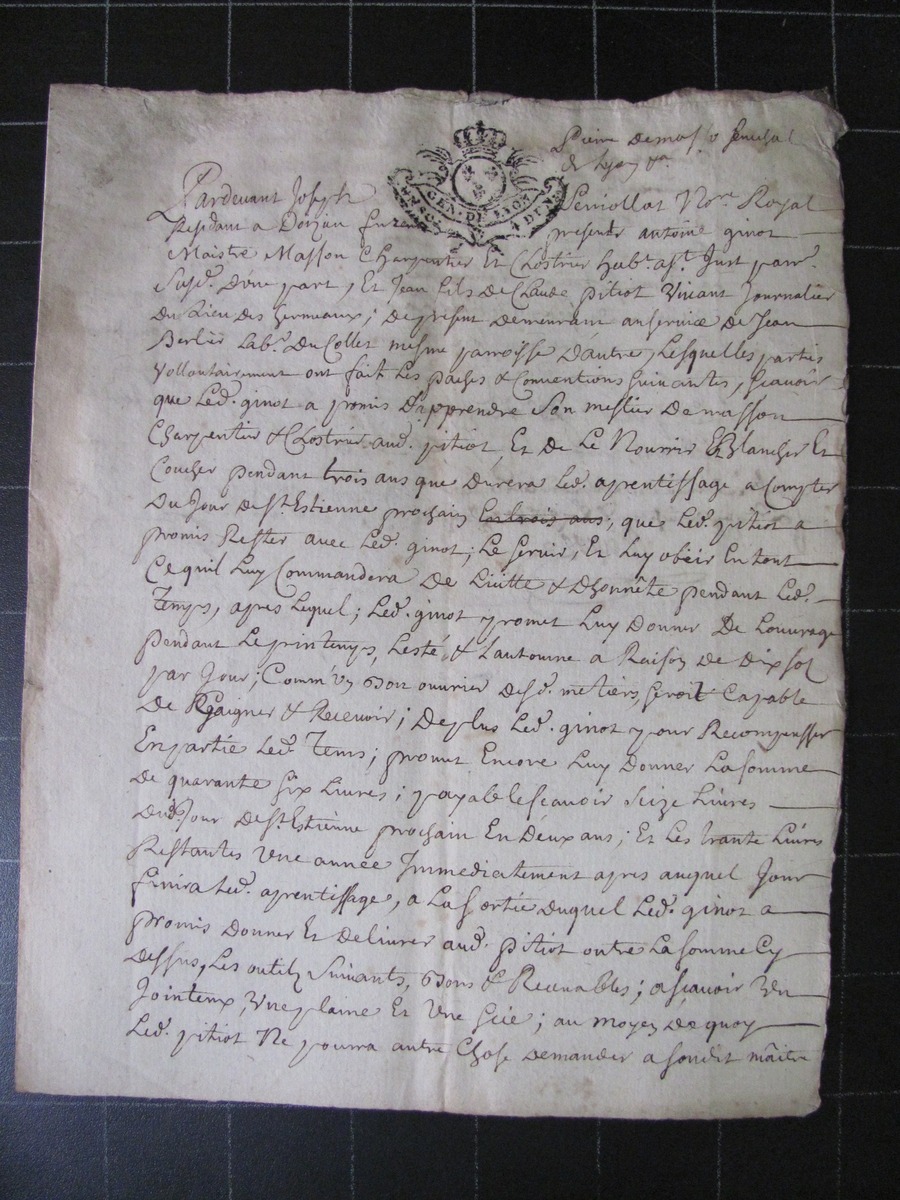 Pierre Demas
GEN. DE LION
Pardevant Joseph Peniollat No.re Royal
Residant a Dorzan furent presents antoine ginot
Maistre Masson Charpentier Et Clostrier hab.t a s.t Just parr.
Susd. d'une part, Et Jean fils de Claude pitiot Vivant Journalier
Du Lieu des Germeaux; de present demeurant au service de Jean
Berlier Lab.r Du Collet mesme parroisse d'autre, Lesquelles parties
vollontairement ont fait Les paches & Conventions suivantes, scavoir
que Led. ginot a promis d'apprendre Son mestier De masson
Charpentier & Clostrier aud. pitiot, Et de Le Nourrir Blancher Et
Coucher pendant trois ans que Durera Led. aprentissage a Compter
Du Jour de s.t Estienne prochain Les trois ans, que Led. pitiot a
promis Rester avec Led. ginot; Le servir, Et Luy obeir En tout
Ce quil Luy Commandera De Licitte & d'honnête pendant Led.
Temps, apres Lequel; Led. ginot promet Luy Donner De Louvrage
pendant Le printemps, Lesté & Lautomne a Raison de dix sol
par Jour; Comm'un Bon ouvrier desd. metiers seroit Capable
De Gaigner & Recevoir; De plus Led. ginot pour Recompenser
En partie Led. Tems; promet Encore Luy Donner La somme
de quarante six Livres; payable scavoir seize Livres
dud. Jour de s.t Estienne prochain En Deux ans; Et Les trante Livres
Restantes Une année Immediatement apres auquel Jour
finira Led. aprentissage, a La sortie duquel Led. ginot a
promis Donner Et Delivrer aud. pitiot outre La somme Cy
dessus, Les outils suivants, Bons & Recevables; a scavoir Un
Jointeux, Une plaine Et Une scie; au moyen de quoy
Led. pitiot Ne pourra autre Chose demander a sondit maître